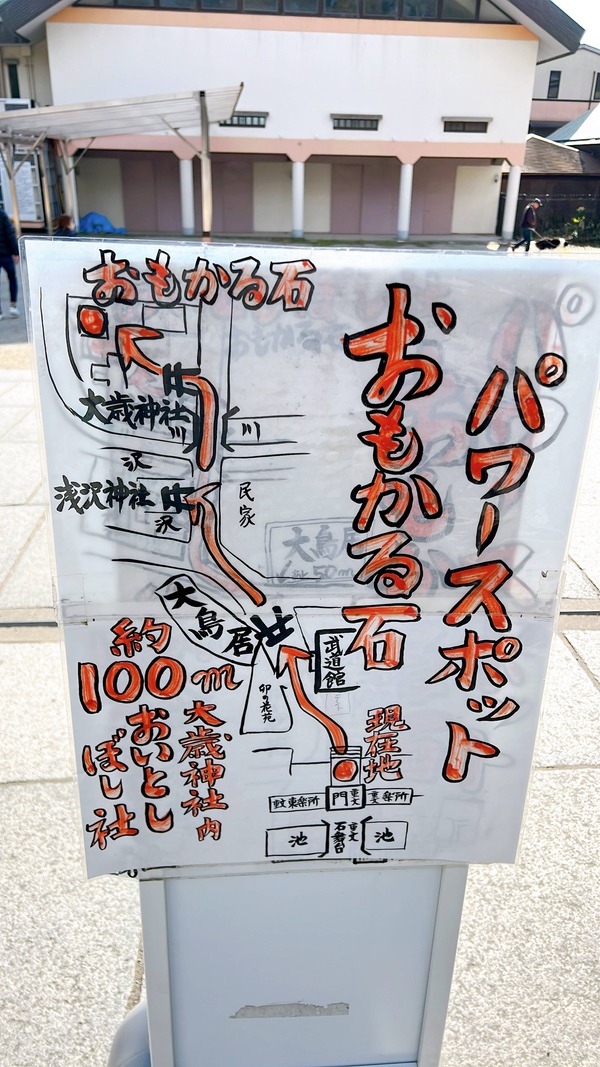 パワースポット
おもかる石
おもかる石
大歳神社
川
川
沢
浅沢神社
沢
民家
大鳥居
武道館
卯の花苑
約
100m
大歳神社内
おいとし
ぼし社
現在地
門
重文
楽所
楽所
池
重文
石舞台
池